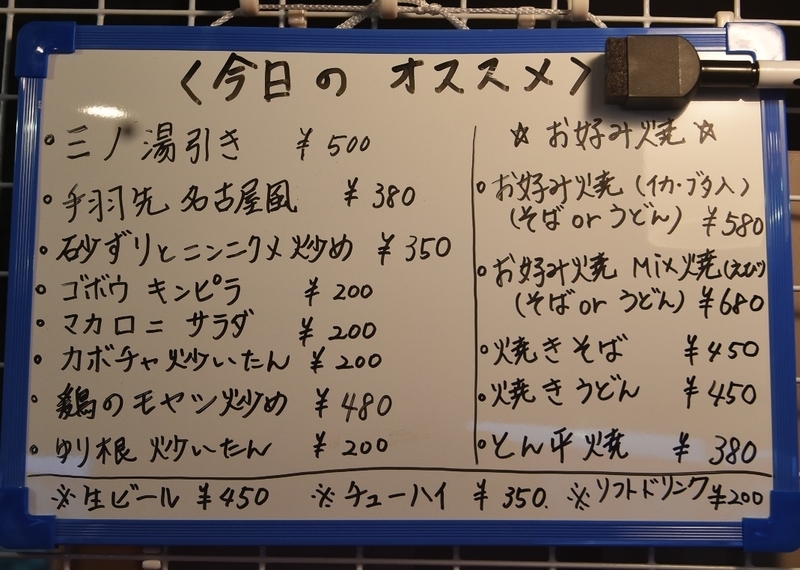 〈今日の オススメ〉
・ミノ湯引き ¥500
・手羽先 名古屋風 ¥380
・砂ずりとニンニクメ炒め ¥350
・ゴボウ キンピラ ¥200
・マカロニ サラダ ¥200
・カボチャ炒いたん ¥200
・鶏のモヤシ炒め ¥480
・ゆり根 炒いたん ¥200
☆ お好み焼 ☆
・お好み焼 (イカ・ブタ入)
(そば or うどん) ¥580
・お好み焼 Mix焼(えび)
(そば or うどん) ¥680
・焼きそば ¥450
・焼きうどん ¥450
・とん平焼 ¥380
※生ビール ¥450 ※チューハイ ¥350. ※ソフトドリンク¥200